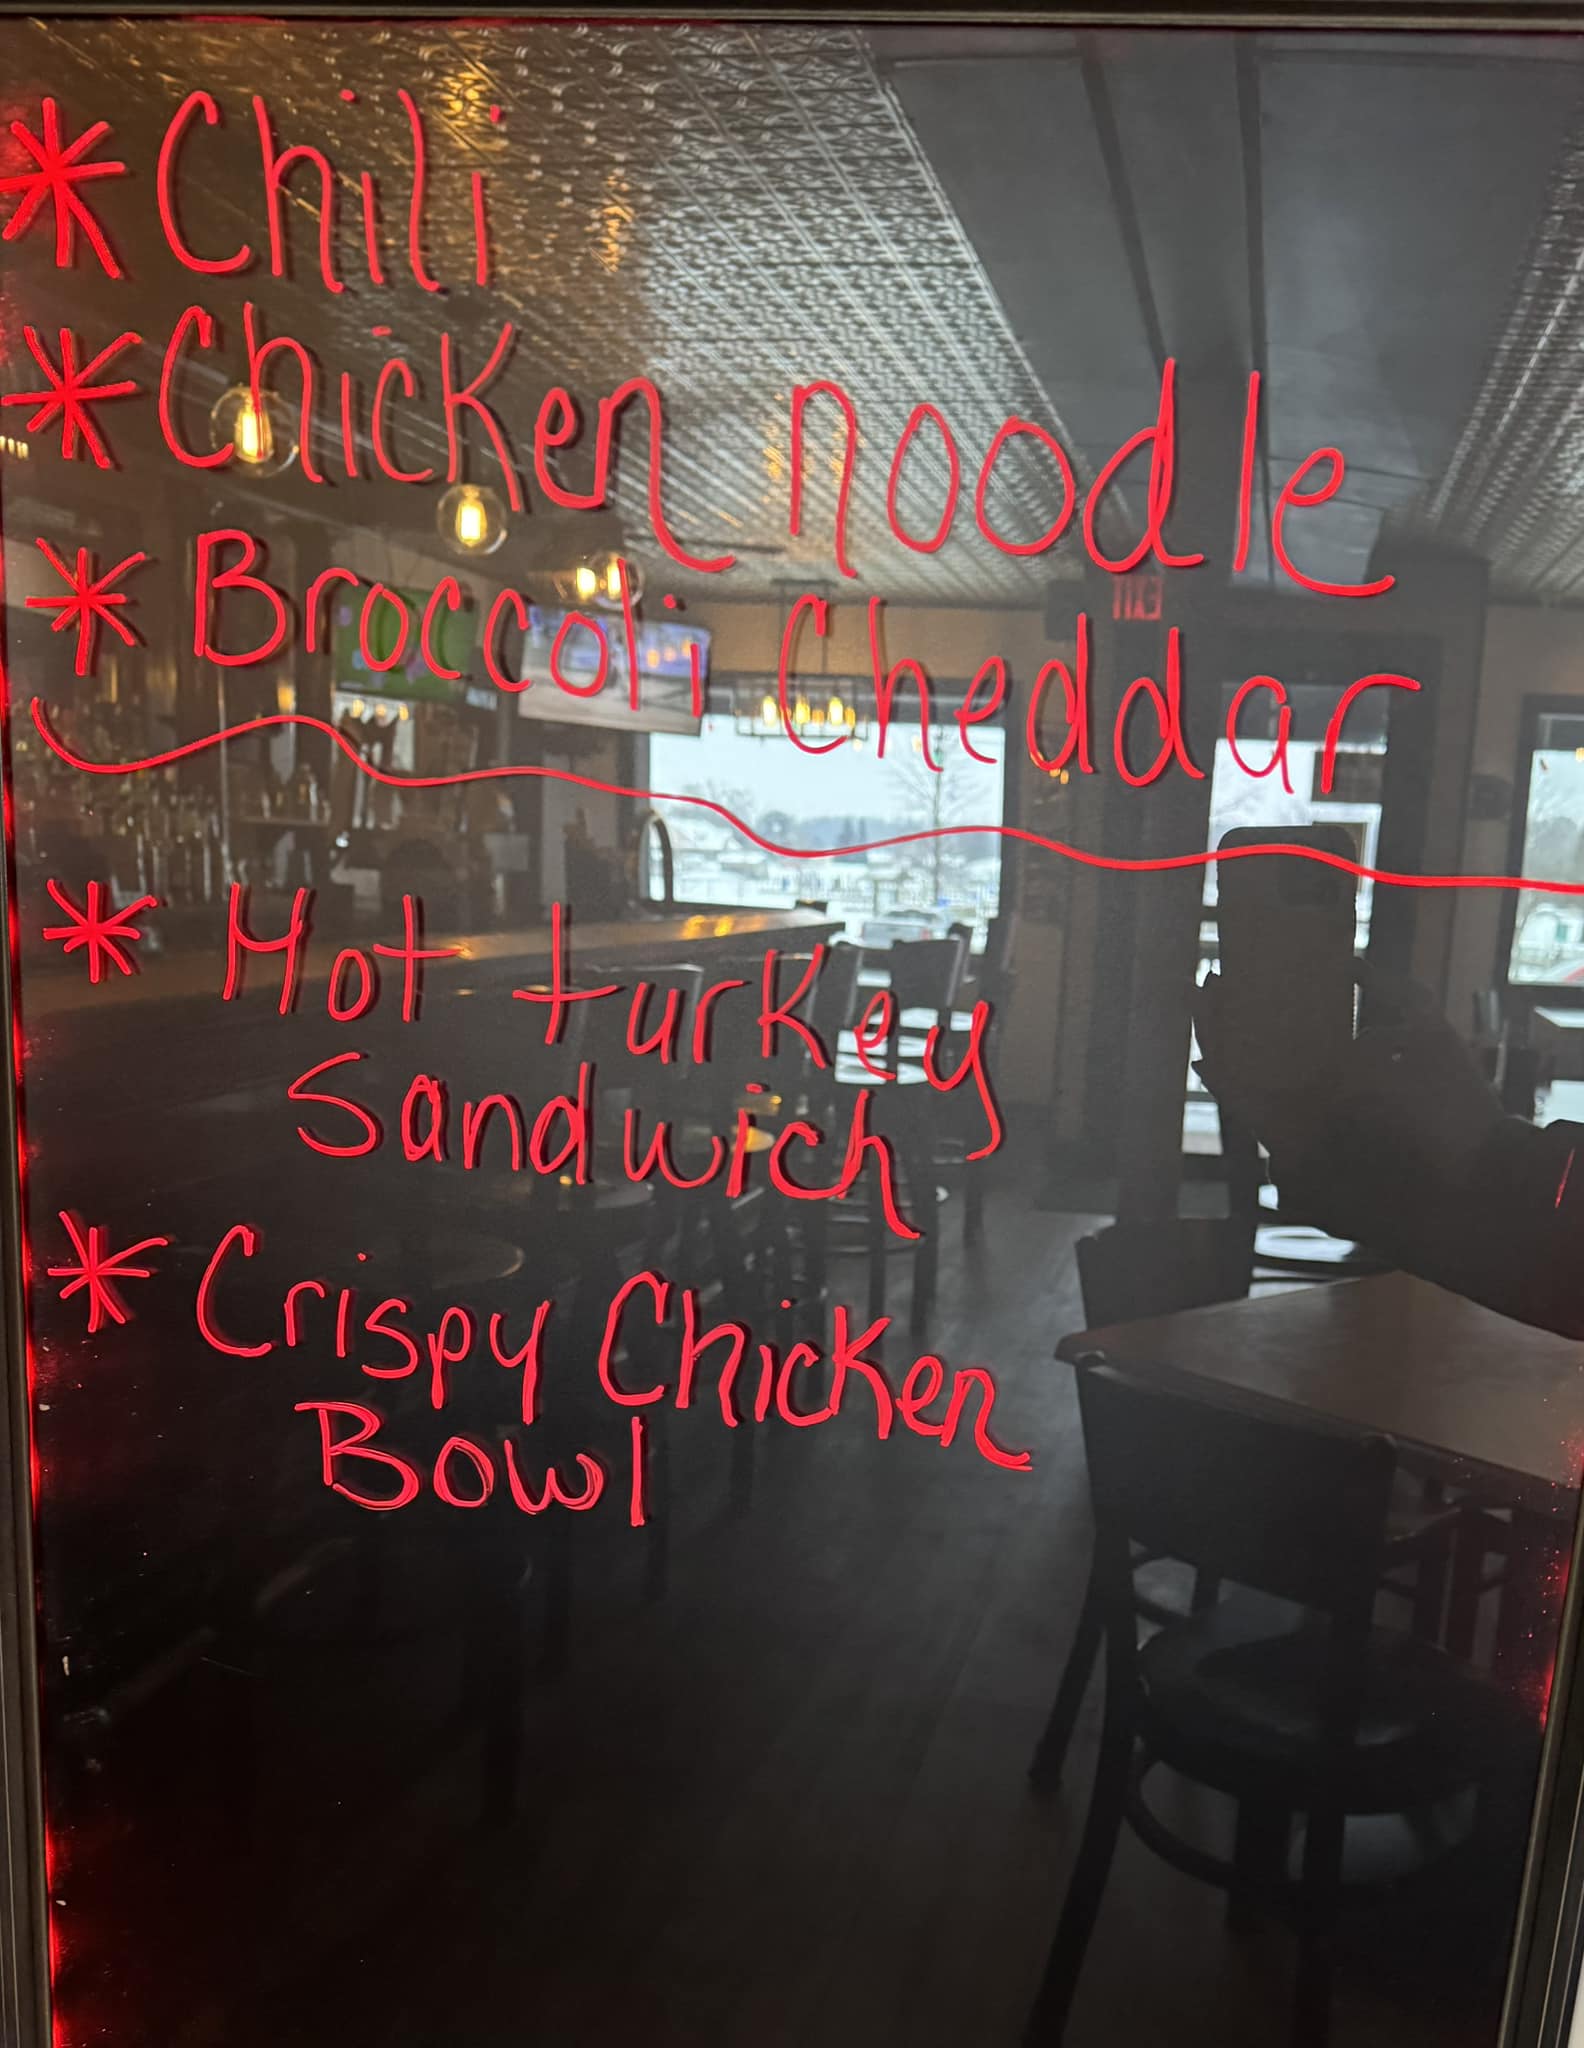 * Chili
* Chicken noodle
* Broccoli Cheddar
EXIT
* Hot turkey
Sandwich
* Crispy Chicken
Bowl